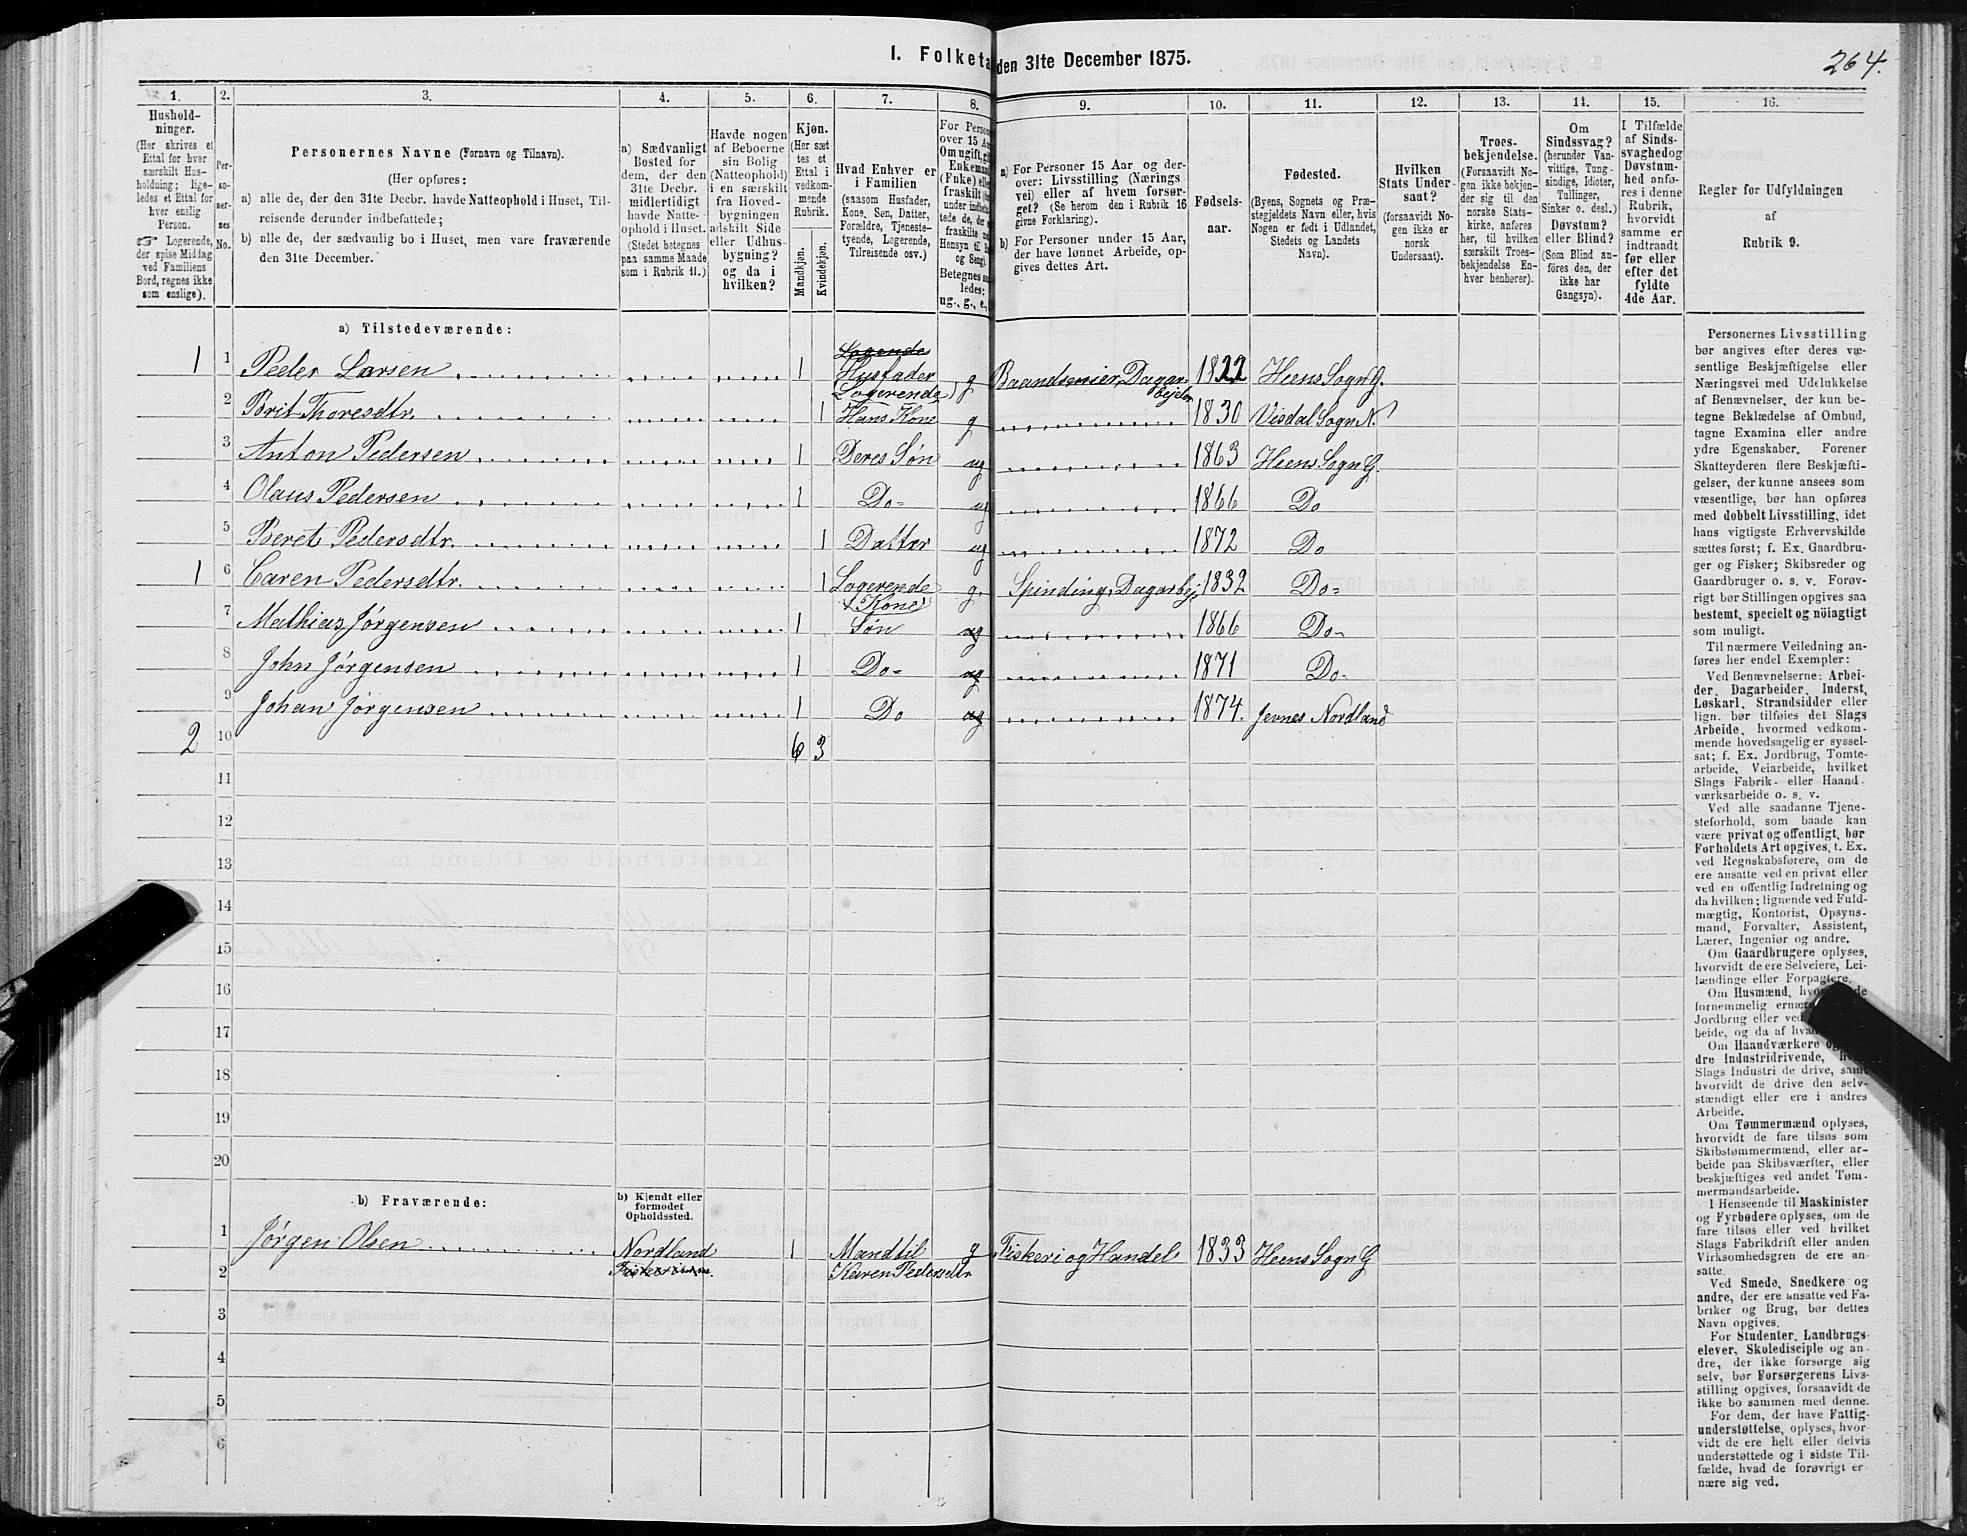 I. Folketa den 31te December 1875.
264.
1. 2. 3. 4. 5. 6. 7. 8. 9. 10. 11. 12. 13. 14. 15. 16.
Hushold-
ninger.
(Her skrives et
Ettal for hver
særskilt Hus-
holdning; lige-
ledes et Ettal for
hver enslig
Person.
☞ Logerende,
der spise Middag
ved Familiens
Bord, regnes ikke
som enslige).
Per-
so-
ner-
nes
No.
Personernes Navne (Fornavn og Tilnavn).
(Her opføres:
a) alle de, der den 31te Decbr. havde Natteophold i Huset, Til-
reisende derunder indbefattede;
b) alle de, der sædvanlig bo i Huset, men vare fraværende
den 31te December.
a) Sædvanligt
Bosted for
dem, der den
31te Decbr.
midlertidigt
havde Natte-
ophold i Huset.
(Stedet betegnes
paa samme Maade
som i Rubrik 11.)
Havde nogen
af Beboerne
sin Bolig
(Natteophold)
i en særskilt
fra Hoved-
bygningen
adskilt Side
eller Udhus-
bygning?
og da i
hvilken?
Kjøn.
(Her sæt
tes et
Ettal i
vedkom-
mende
Rubrik.
Mandkjøn.
Kvindekjøn.
Hvad Enhver er
i Familien
(saasom Husfader,
Kone, Søn, Datter,
Forældre, Tjeneste-
tyende, Logerende,
Tilreisende osv.)
For Perso
over 15 A
Om ugift, gi
Enkeman
(Enke) elle
fraskilt
under indbe
tede de, der
fraskilte
Hensyn til B
og Seng).
Betegnes sa
ledes:
ug., g., e.,
a) For Personer 15 Aar og der-
over: Livsstilling (Nærings
vei) eller af hvem forsør-
get? (Se herom den i Rubrik 16
givne Forklaring).
b) For Personer under 15 Aar,
der have lønnet Arbeide, op-
gives dettes Art.
Fødsels-
aar.
Fødested.
(Byens, Sognets og Præ-
stegjeldets Navn eller, hvis
Nogen er født i Udlandet,
Stedets og Landets
Navn).
Hvilken
Stats Under-
saat?
(forsaavidt No-
gen ikke er
norsk
Undersaat).
Troes-
bekjendelse.
(Forsaavidt No-
gen ikke bekjen-
der sig til den
norske Stats-
kirke, anføres
her, til hvilken
særskilt Troes-
bekjendelse En-
hver henhører).
Om
Sindssvag?
(herunder Van-
vittige, Tung-
sindige, Idioter,
Tullinger,
Sinker o. desl.)
Døvstum?
eller Blind?
(Som Blind an-
føres den, der
ikke har
Gangsyn).
I Tilfælde
af Sinds-
svaghed og
Døvstum-
hed anfø-
res i denne
Rubrik,
hvorvidt
samme er
indtraadt
før eller
efter det
fyldte
4de Aar.
Regler for Udfyldningen
af
Rubrik 9.
a) Tilstedeværende:
1 1 Peder Larsen 1 Logende Husfader (Logerende) g Baandsmier, Dagarbejder 1822 Heens Sogn G.
2 Brit Thoresdtr. 1 Hans Kone g 1830 Visdal Sogn N.
3 Anton Pedersen 1 Deres Søn ug 1863 Heens Sogn G.
4 Olaus Pedersen 1 Do- ug 1866 Do
5 Beret Pedersdtr. 1 Datter ug 1872 Do
1 6 Caren Pedersdtr. 1 Logerende (Kone) g. Spinding, Dagarbej 1832 Do-
7 Mathias Jørgensen 1 Søn ug 1866 Do-
8 John Jørgensen 1 Do- ug 1871 Do-
9 Johan Jørgensen 1 Do ug 1874. Jevnes Nordland
2 10 6 3
11
12
13
14
15
16
17
18
19
20
b) Fraværende:
b) Kjendt eller
formodet
Opholdssted.
1 Jørgen Olsen Nordland 1 Mand til g Fiskeri og Handel 1833 Heens Sogn G
2 Karen Pedersdtr
3
4
5
6
Personernes Livsstilling
bør angives efter deres væ-
sentlige Beskjæftigelse eller
Næringsvei med Udelukkelse
af Benævnelser, der kun be-
tegne Beklædelse af Ombud,
tagne Examina eller andre
ydre Egenskaber. Forener
Skatteyderen flere Beskjæfti-
gelser, der kunne ansees som
væsentlige, bør han opføres
med dobbelt Livsstilling, idet
hans vigtigste Erhvervskilde
sættes først; f. Ex. Gaardbru-
ger og Fisker; Skibsreder og
Gaardbruger o. s. v. Forøv-
rigt bør Stillingen opgives saa
bestemt, specielt og nöiagtigt
som muligt.
Til nærmere Veiledning an-
føres her endel Exempler:
Ved Benævnelserne: Arbei-
der, Dagarbeider, Inderst,
Løskarl, Strandsidder eller
lign. bør tilføies det Slags
Arbeide, hvormed vedkom-
mende hovedsagelig er syssel-
sat; f. Ex. Jordbrug, Tomte-
arbeide, Veiarbeide, hvilket
Slags Fabrik- eller Haand-
værksarbeide o. s. v.
Ved alle saadanne Tjene-
steforhold, som baade kan
være privat og offentligt, bør
Forholdets Art opgives, t. Ex.
ved Regnskabsførere, om de
ere ansatte ved en privat eller
ved en offentlig Indretning og
da hvilken; lignende ved Fuld-
mægtig, Kontorist, Opsyns-
mand, Forvalter, Assistent,
Lærer, Ingeniør og andre.
Om Gaardbrugere oplyses,
hvorvidt de ere Selveiere, Lei-
lændinge eller Forpagtere.
Om Husmænd, hvo de
fornemmelig ernære
Jordbrug eller ved
beide, og da af hva
Om Haandværkere og
dre Industridrivende, hv
Slags Industri de drive, samt
hvorvidt de drive den selv-
stændigt eller ere i andres
Arbeide.
Om Tømmermænd oplyses,
hvorvidt de fare tilsøs som
Skibstømmermænd, eller ar-
beide paa Skibsværfter, eller
beskjæftiges ved andet Tøm-
mermandsarbeide.
I Henseende til Maskinister
og Fyrbødere oplyses, om de
fare tilsøs eller ved hvilket
Slags Fabrikdrift eller anden
Virksomhedsgren de ere an-
satte.
Ved Smede, Snedkere og
andre, der ere ansatte ved Fa-
briker og Brug, bør dettes
Navn opgives.
For Studenter, Landbrugs-
elever, Skoledisciple og an-
dre, der ikke forsørge sig
selv, bør Forsørgerens Livs-
stilling opgives, forsaavidt de
ikke bo sammen med denne.
For dem, der have Fattig-
understøttelse, oplyses, hvor-
vidt de ere helt eller delvis
understøttede og i sidste Til-
fælde, hvad de forøvrigt er-
nære sig ved.